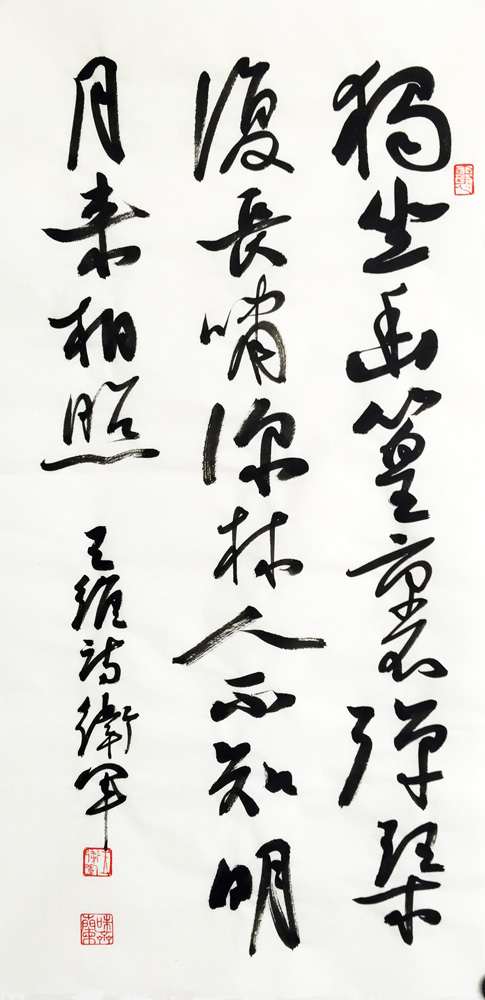 獨坐幽篁裏彈琴
復長嘯深林人不知明
月来相照
王維詩衛軍